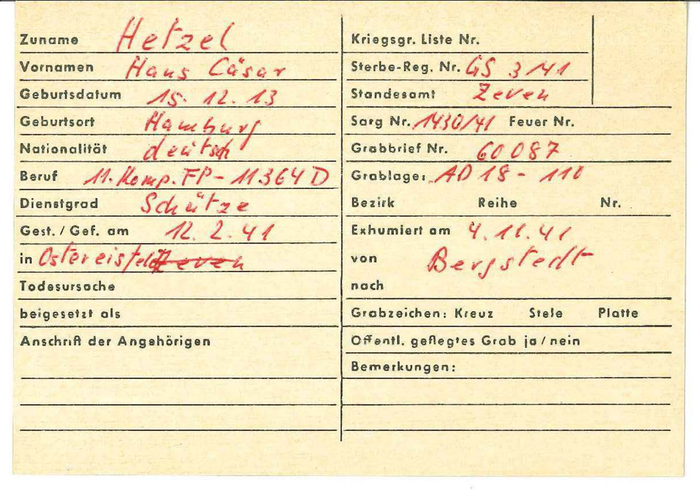 Zuname Hetzel
Vornamen Hans Cäsar
Geburtsdatum 15. 12. 13
Geburtsort Hamburg
Nationalität deutsch
Beruf 11. Komp. FP - 11364 D
Dienstgrad Schütze
Gest. / Gef. am 12. 2. 41
in Ostereistedt Zeven
Todesursache
beigesetzt als
Anschrift der Angehörigen
Kriegsgr. Liste Nr.
Sterbe-Reg. Nr. GS 3/41
Standesamt Zeven
Sarg Nr. 1430/41 Feuer Nr.
Grabbrief Nr. 60087
Grablage: AD 18 - 110
Bezirk Reihe Nr.
Exhumiert am 4. 11. 41
von Bergstedt
nach
Grabzeichen: Kreuz Stele Platte
Öffentl. gepflegtes Grab ja / nein
Bemerkungen: